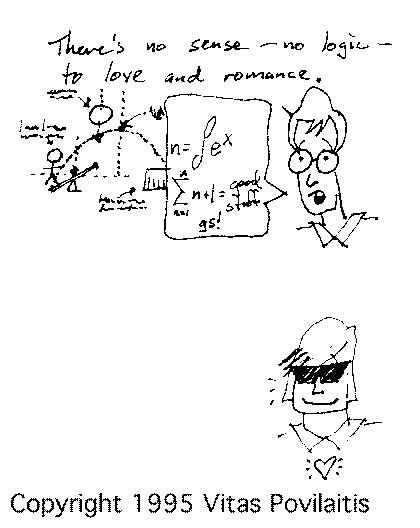 There's no sense — no logic —
to love and romance.
n = ∫e^x
n
∑ n+1 = good
n=1 stuff
gs!
Copyright 1995 Vitas Povilaitis